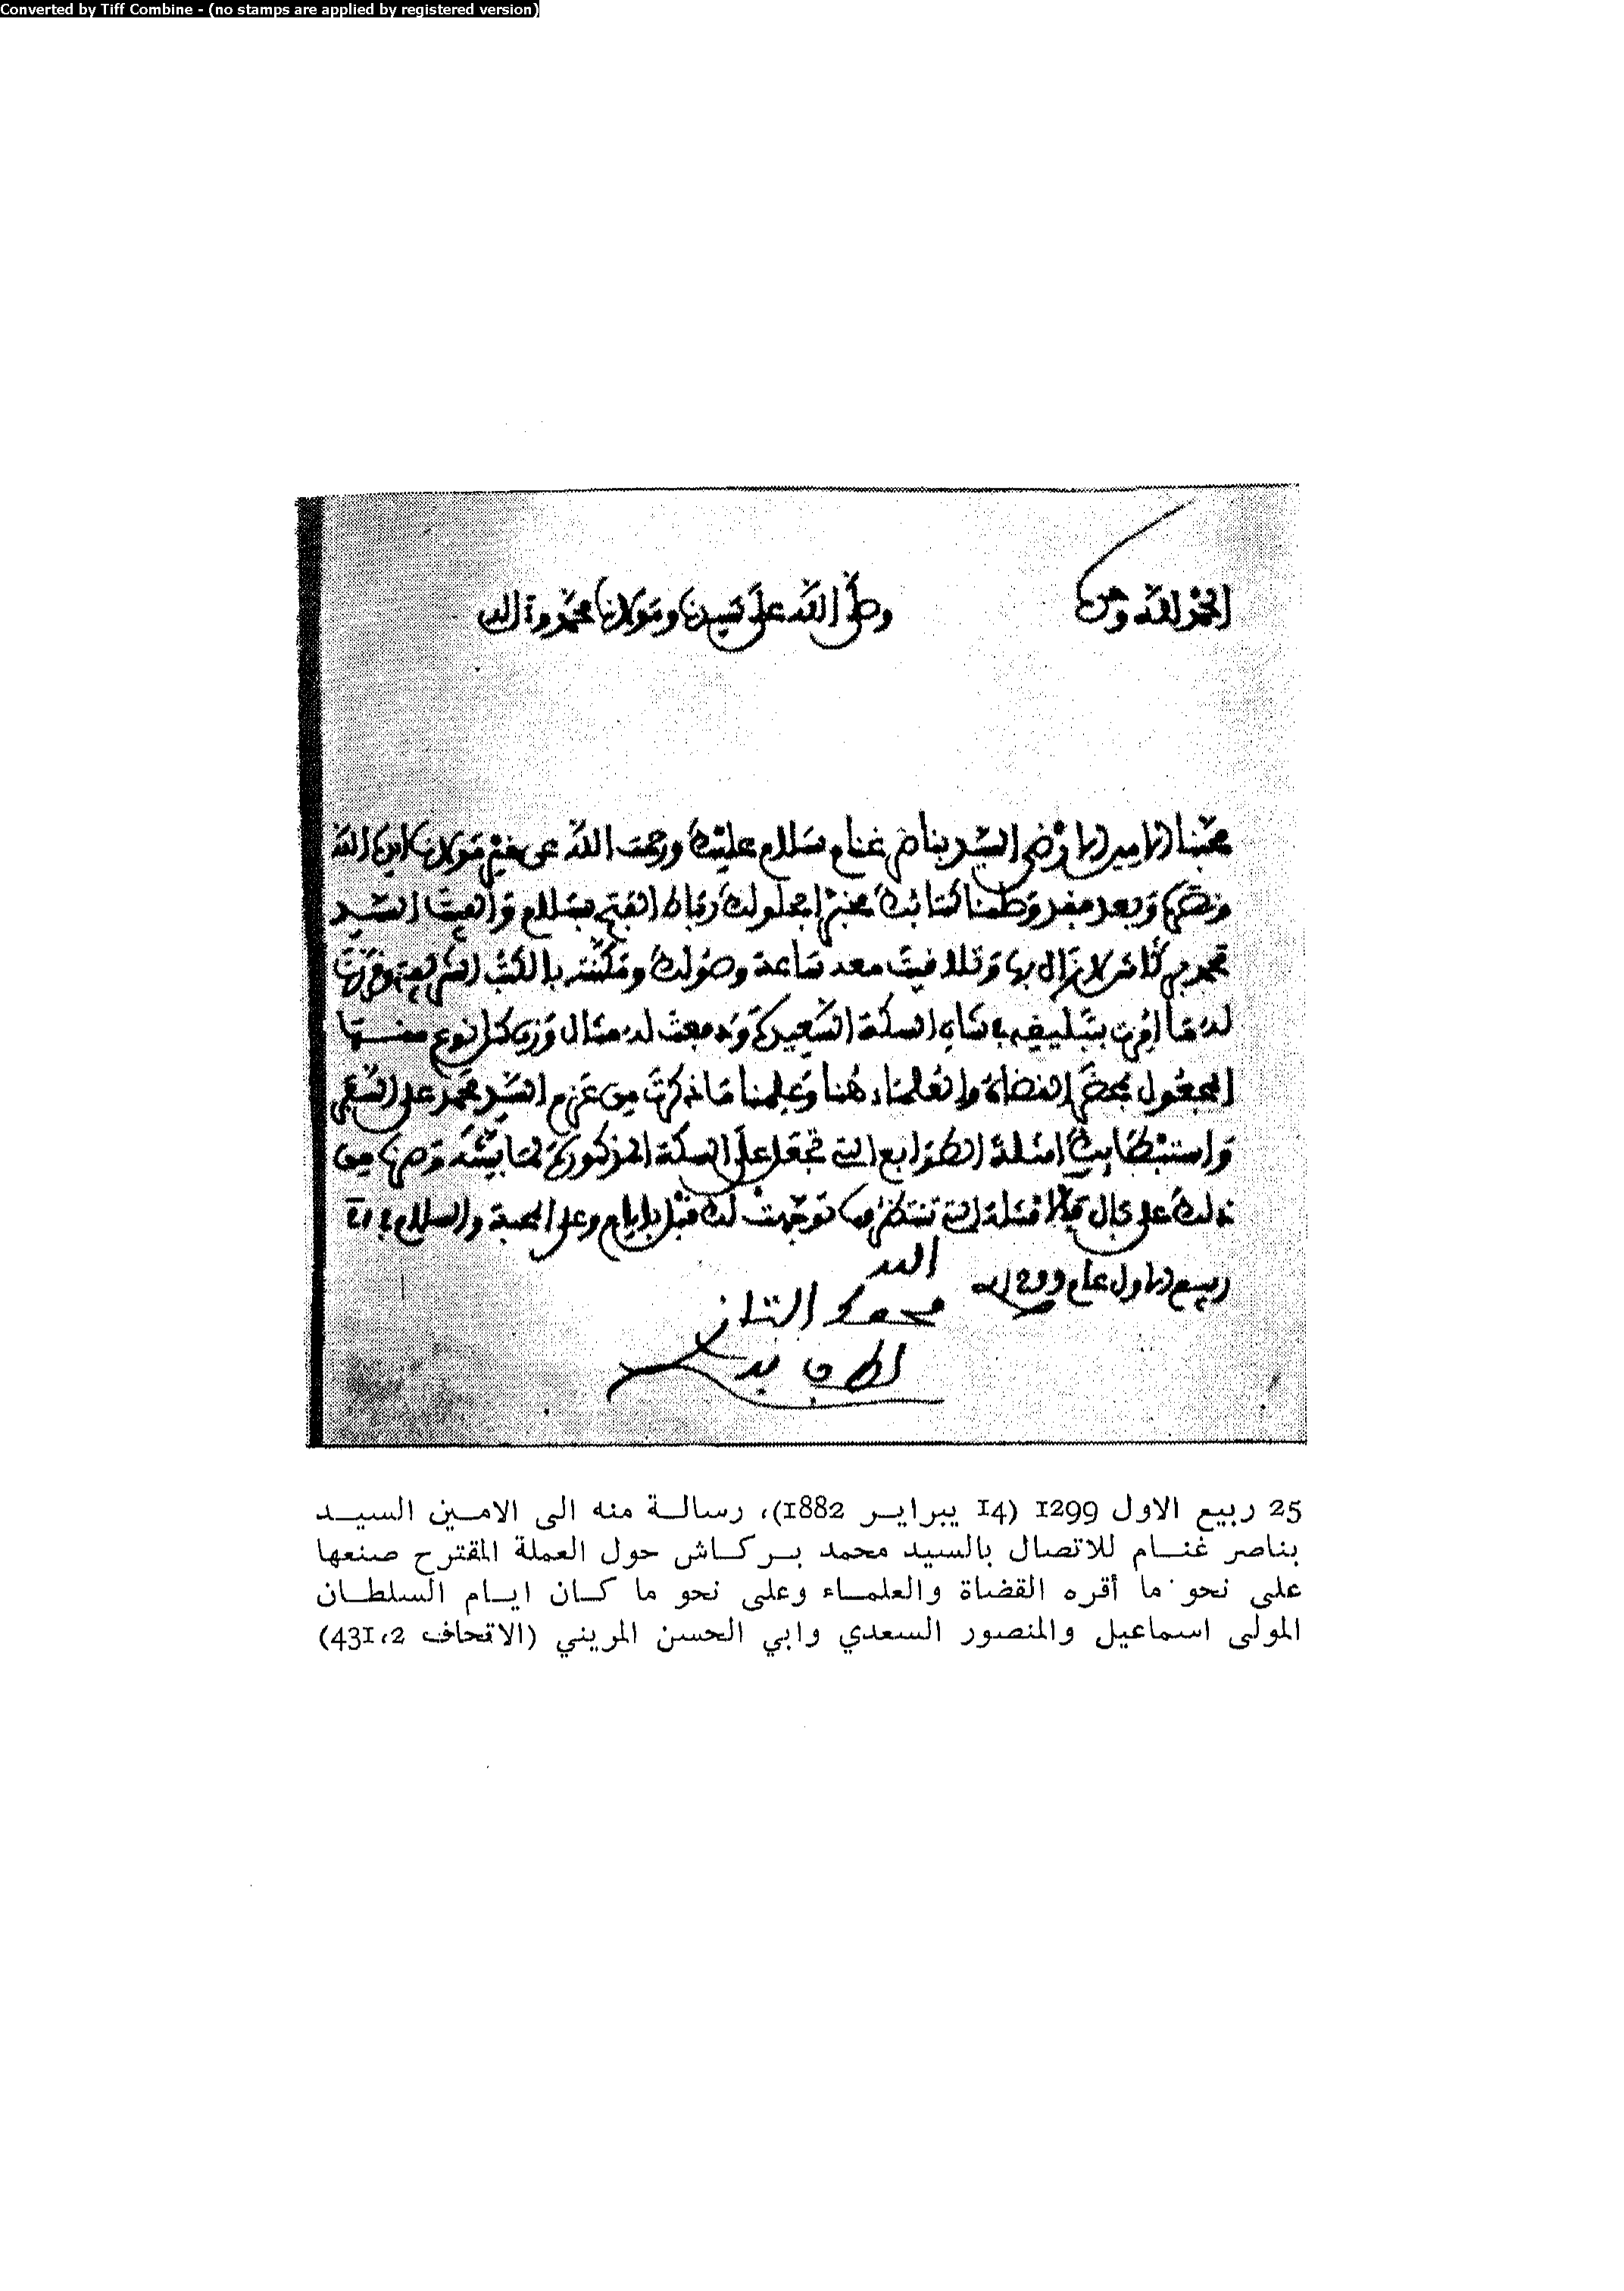 Converted by Tiff Combine - (no stamps are applied by registered version)
الحمد لله وحده وصلى الله على سيدنا ومولانا محمد وآله
محبنا الامين الارضى السيد بناصر غنام سلام عليك ورحمت الله عن خير مولانا ايده الله
ونصره وبعد فقد وصلنا كتابك مخبرا بحلولك رباط الفتح بسلام والفيت السيد
محمد بركاش لا زال بها وتلاقيت معه ساعة وصولك ومكنته بالكتب الشريفة وقررت
له ما امرت بتبليغه في شان السكة السعيدة ودفعت له مثال وزن كل نوع منها
المجعول بمحضر القضاة والعلماء هنا وعلمنا ما ذكرت من عزم السيد محمد على السفر
واستبطابك امثلة الطوابع التي تجعل على السكة المذكورة لمباشته وصرنا من
ذلك على بال فالامثلة التي تنتظرها توجهت لك قبل بايام وعلى المحبة والسلام في 25
ربيع الاول عام 1299
محمد التازي
لطف به
25 ربيع الاول 1299 (14 يبراير 1882)، رسالة منه الى الامين السيد
بناصر غنام للاتصال بالسيد محمد بركاش حول العملة المقترح صنعها
على نحو ما أقره القضاة والعلماء وعلى نحو ما كان ايام السلطان
المولى اسماعيل والمنصور السعدي وابي الحسن المريني (الاتحاف 2،431)